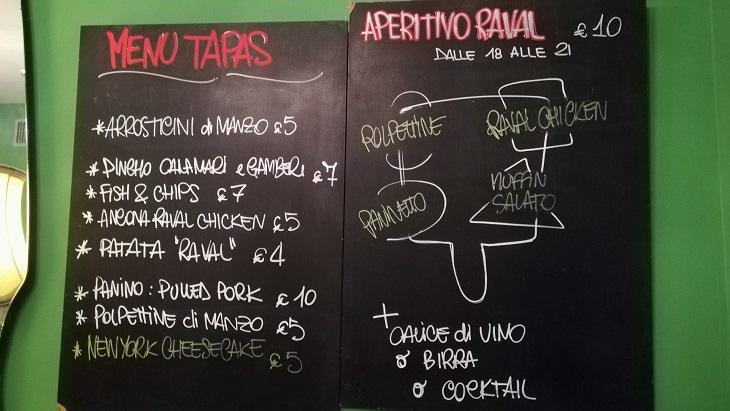 MENU TAPAS
* ARROSTICINI di MANZO € 5
* PINCHO CALAMARI e GAMBERI € 7
* FISH & CHIPS € 7
* ANCONA RAVAL CHICKEN € 5
* PATATA "RAVAL" € 4
* PANINO: PULLED PORK € 10
* POLPETTINE di MANZO € 5
* NEW YORK CHEESECAKE € 5
APERITIVO RAVAL € 10
DALLE 18 ALLE 21
POLPETTINE
RAVAL CHICKEN
PANINETTO
MUFFIN
SALATO
+
CALICE di VINO
o BIRRA
o COCKTAIL